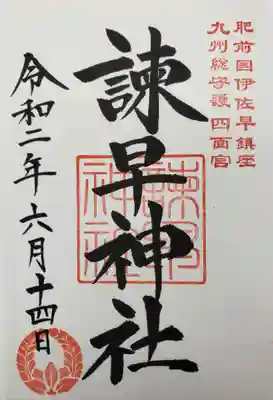 肥前国伊佐早鎮座
九州総守護四面宮
諫早神社
諫早神社
令和二年六月十四日